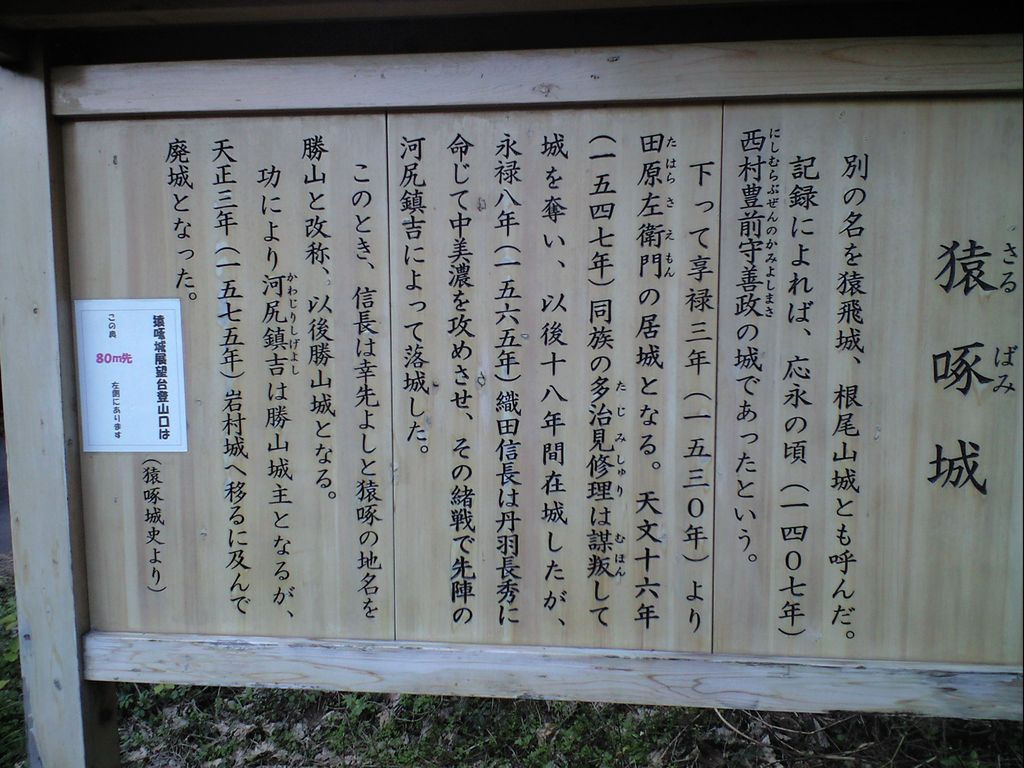 猿啄城
さるばみ
別の名を猿飛城、根尾山城とも呼んだ。
記録によれば、応永の頃（一四０七年）
西村豊前守善政の城であったという。
にしむらぶぜんのかみよしまさ
下って享禄三年（一五三０年）より
田原左衛門の居城となる。天文十六年
たはらさえもん
（一五四七年）同族の多治見修理は謀叛して
たじみしゅりむほん
城を奪い、以後十八年間在城したが、
永禄八年（一五六五年）織田信長は丹羽長秀に
命じて中美濃を攻めさせ、その緒戦で先陣の
河尻鎮吉によって落城した。
このとき、信長は幸先よしと猿啄の地名を
勝山と改称、以後勝山城となる。
功により河尻鎮吉は勝山城主となるが、
かわじりしげよし
天正三年（一五七五年）岩村城へ移るに及んで
廃城となった。
（猿啄城史より）
猿啄城展望台登山口は
この奥 80m先 左側にあります